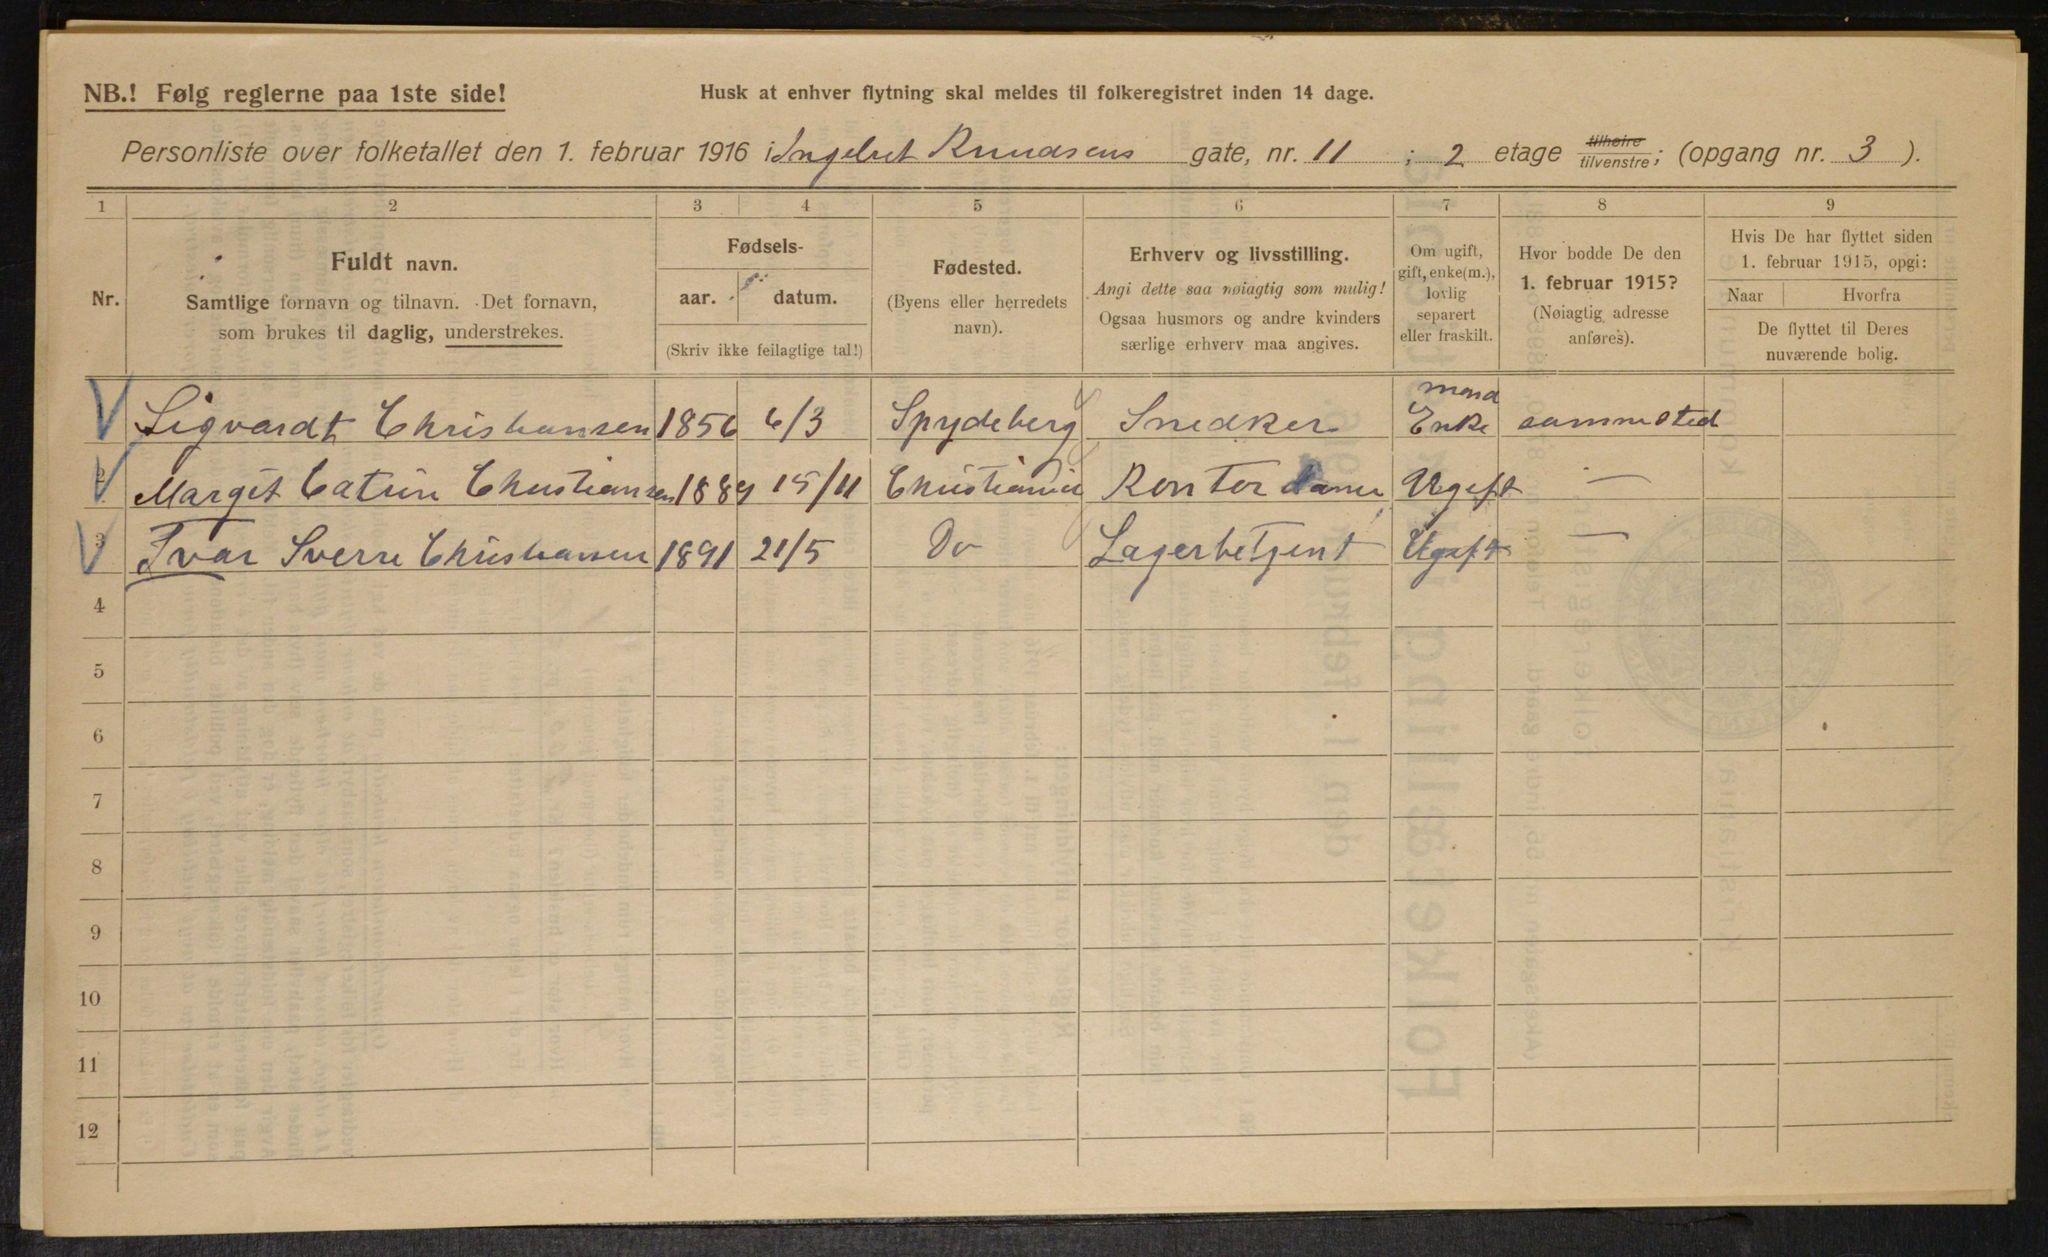 NB.! Følg reglerne paa 1ste side!
Husk at enhver flytning skal meldes til folkeregistret inden 14 dage.
Personliste over folketallet den 1. februar 1916 i Ingelret Knudsens gate, nr. 11 ; 2 etage tilhøire tilvenstre; (opgang nr. 3 ).
1 2 3 4 5 6 7 8 9
Nr.
Fuldt navn.
Samtlige fornavn og tilnavn. Det fornavn,
som brukes til daglig, understrekes.
Fødsels-
aar. datum.
(Skriv ikke feilagtige tal!)
Fødested.
(Byens eller herredets
navn).
Erhverv og livsstilling.
Angi dette saa nøiagtig som mulig!
Ogsaa husmors og andre kvinders
særlige erhverv maa angives.
Om ugift,
gift, enke(m.),
lovlig
separert
eller fraskilt.
Hvor bodde De den
1. februar 1915?
(Nøiagtig adresse
anføres).
Hvis De har flyttet siden
1. februar 1915, opgi:
Naar Hvorfra
De flyttet til Deres
nuværende bolig.
Sigvardt Christiansen 1856 6/3 Spydeberg Snedker Enke mand sammested
2 Margit Catrin Christiansen 1889 15/11 Christiania Kontordame Ugift —
3 Ivar Sverre Christiansen 1891 21/5 Do Lagerbetjent Ugift —
4
5
6
7
8
9
10
11
12